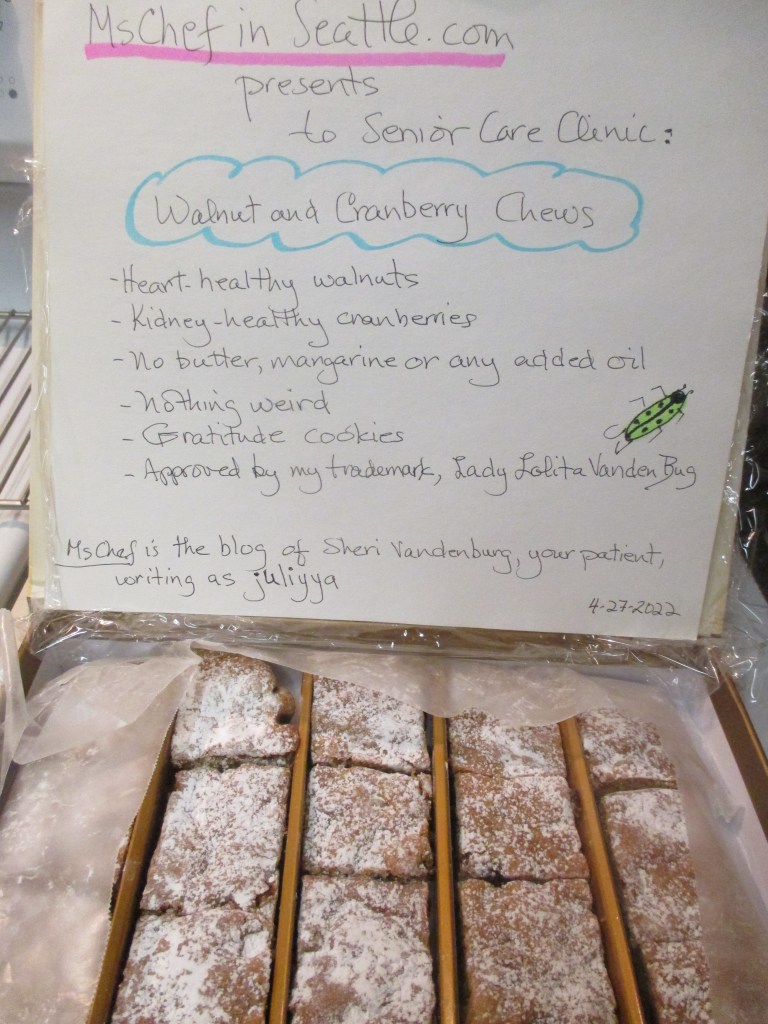 MsChef in Seattle.com
presents
to Senior Care Clinic:
Walnut and Cranberry Chews
- Heart-healthy walnuts
- Kidney-healthy cranberries
- No butter, mangarine or any added oil
- Nothing weird
- Gratitude cookies
- Approved by my trademark, Lady Lolita Vanden Bug
MsChef is the blog of Sheri Vandenburg, your patient,
writing as juliyya
4-27-2022